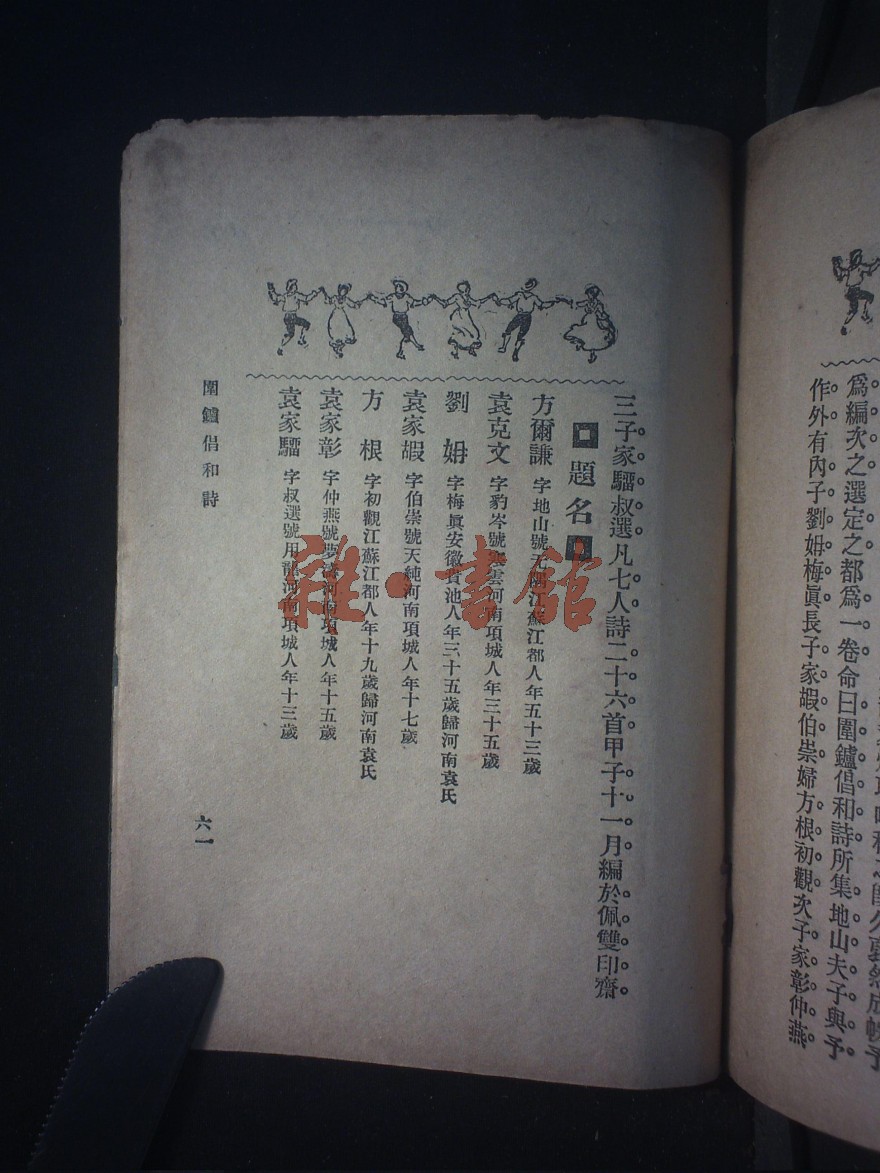 爲編次之選定之都爲一卷命曰圍鑪倡和詩所集地山夫子與予
作外有內子劉姌梅眞長子家嘏伯崇婦方根初觀次子家彰仲燕
三子家騮叔選凡七人詩二十六首甲子十一月編於佩雙印齋
題名
方爾謙 字地山號无隅江蘇江都人年五十三歲
袁克文 字豹岑號寒雲河南項城人年三十五歲
劉姌 字梅眞安徽貴池人年三十五歲歸河南袁氏
袁家嘏 字伯崇號天純河南項城人年十七歲
方根 字初觀江蘇江都人年十九歲歸河南袁氏
袁家彰 字仲燕號夢 河南項城人年十五歲
袁家騮 字叔選號用龍河南項城人年十三歲
圍鑪倡和詩
六一
雜·書館